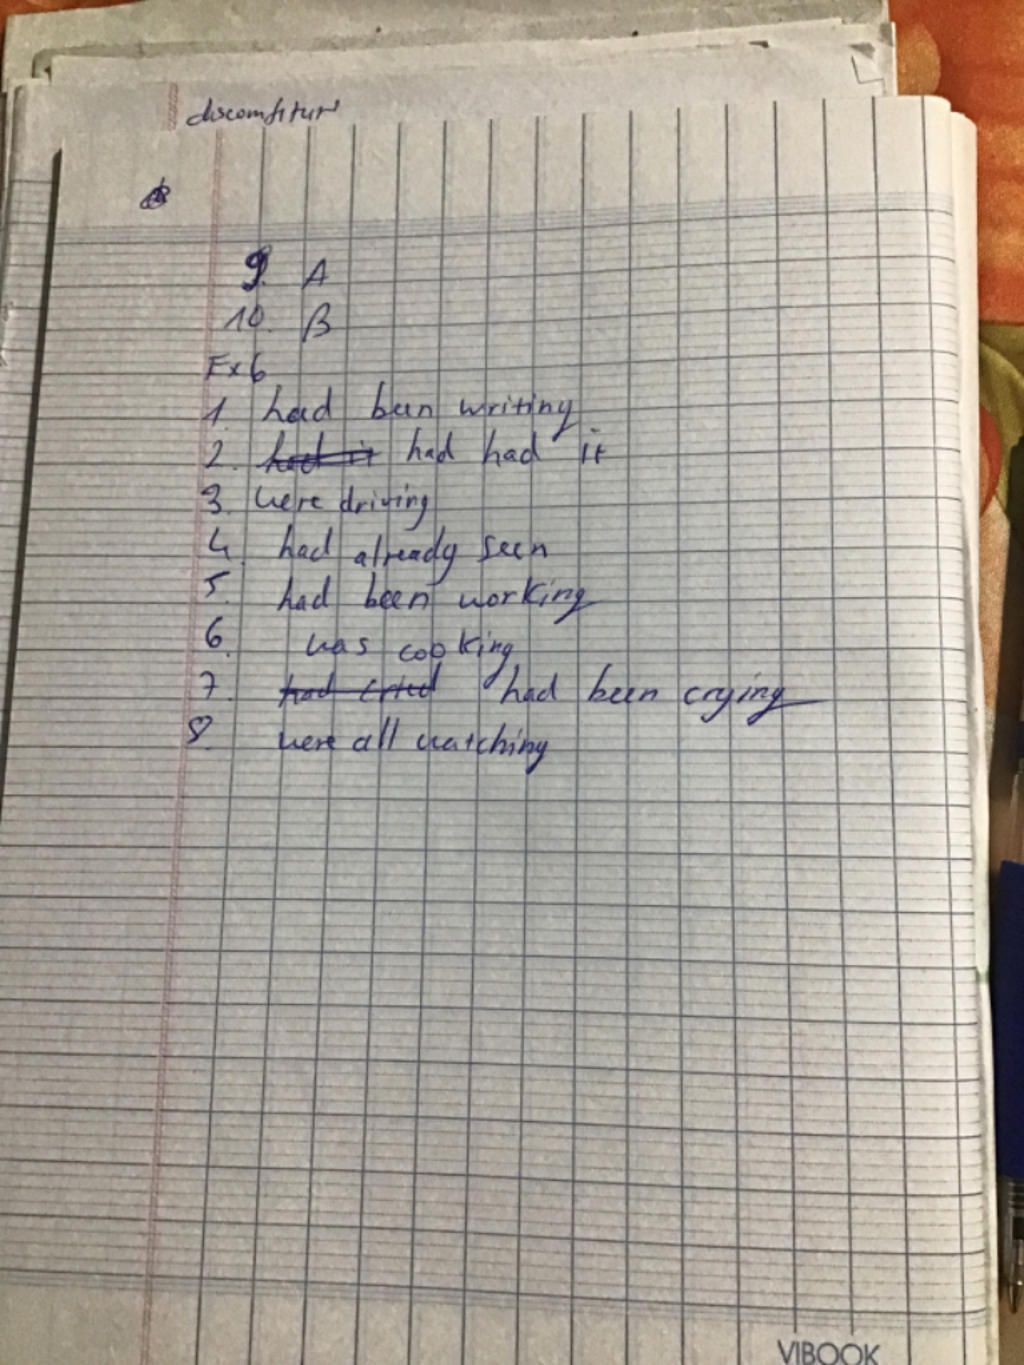 discomfiture
9. A
10. B
Ex 6
1. had been writing
2. had it had had it
3. were driving
4. had already seen
5. had been working
6. was cooking
7. had cried had been crying
8. were all watching
VIBOOK